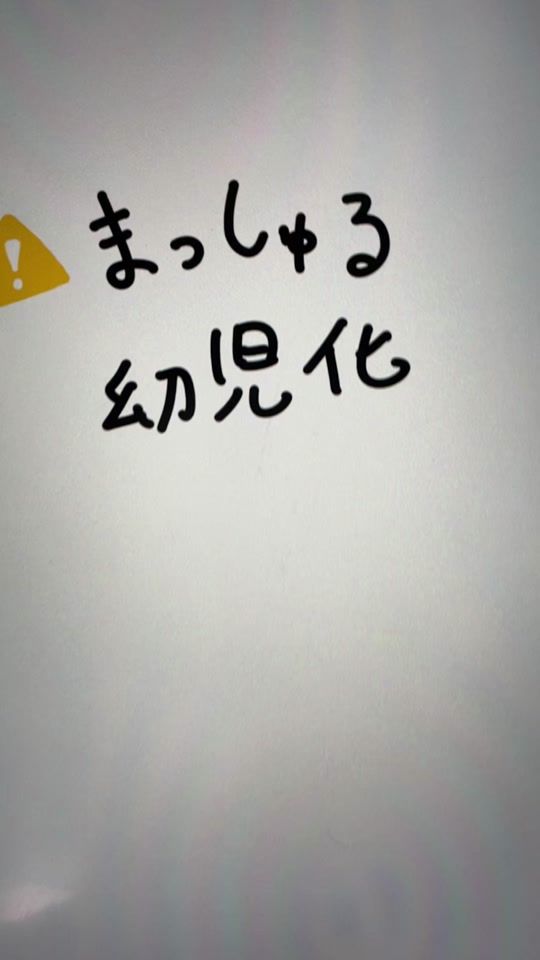 !
まっしゅる
幼児化